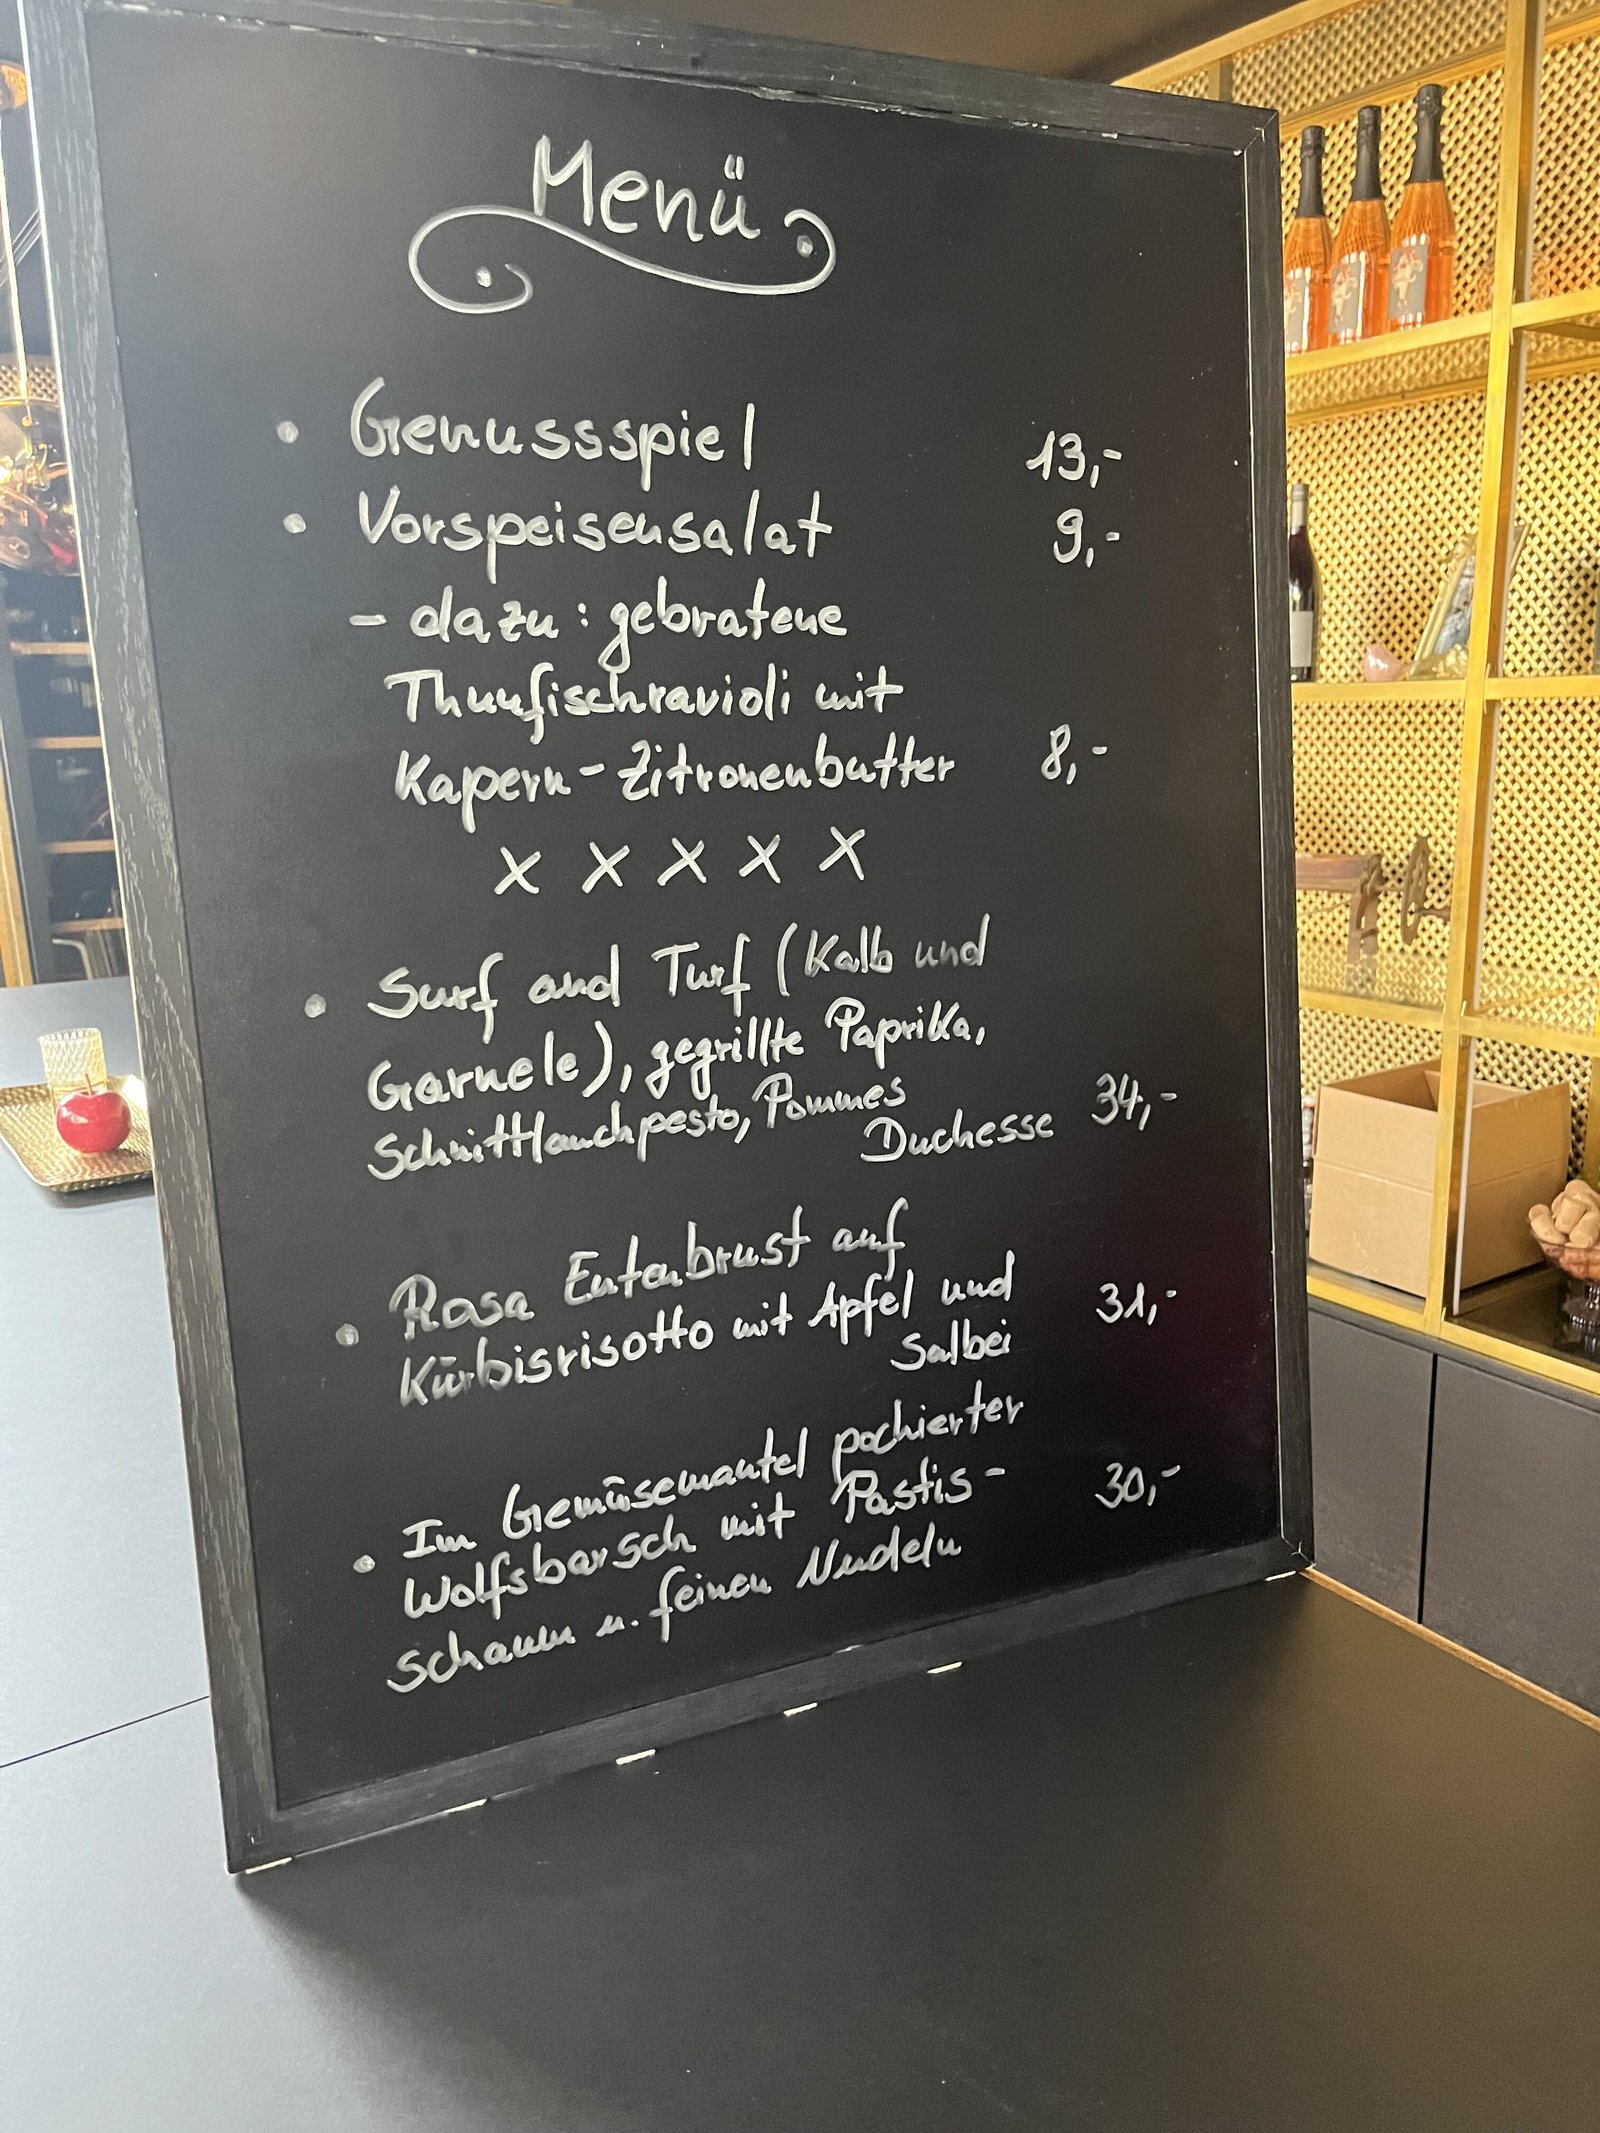 Menü
• Genussspiel 13,-
• Vorspeisensalat 9,-
- dazu: gebratene
Thunfischravioli mit
Kapern-Zitronenbutter 8,-
X X X X X
• Surf and Turf (Kalb und
Garnele), gegrillte Paprika,
Schnittlauchpesto, Pommes
Duchesse 34,-
Rosa Entenbrust auf
• Kürbisrisotto mit Apfel und 31,-
Salbei
• Im Gemüsemantel pochierter
Wolfsbarsch mit Pastis- 30,-
schaum u. feinen Nudeln